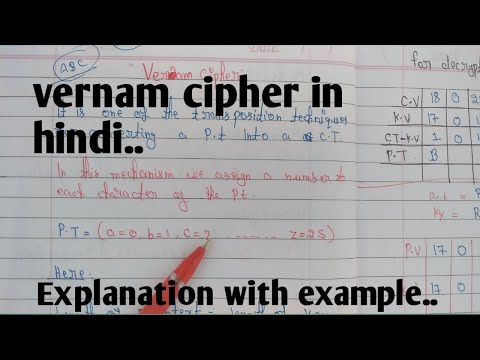 ABC
"Vernam Cipher:
vernam cipher in
hindi..
It is one of the transposition techniques
a P.t Into a C.T.
In this mechanism we assign a number to
each character of the Pt.
P.T = (a=0, b=1, c=2 ........ z=25)
Here:
Explanation with example..
for decryp
C.V 18 0 2
K.V 17 0 1
CT-KV 1 0 1
P.T. B
P.t =
Ky = R
P.V 17 0
17 0